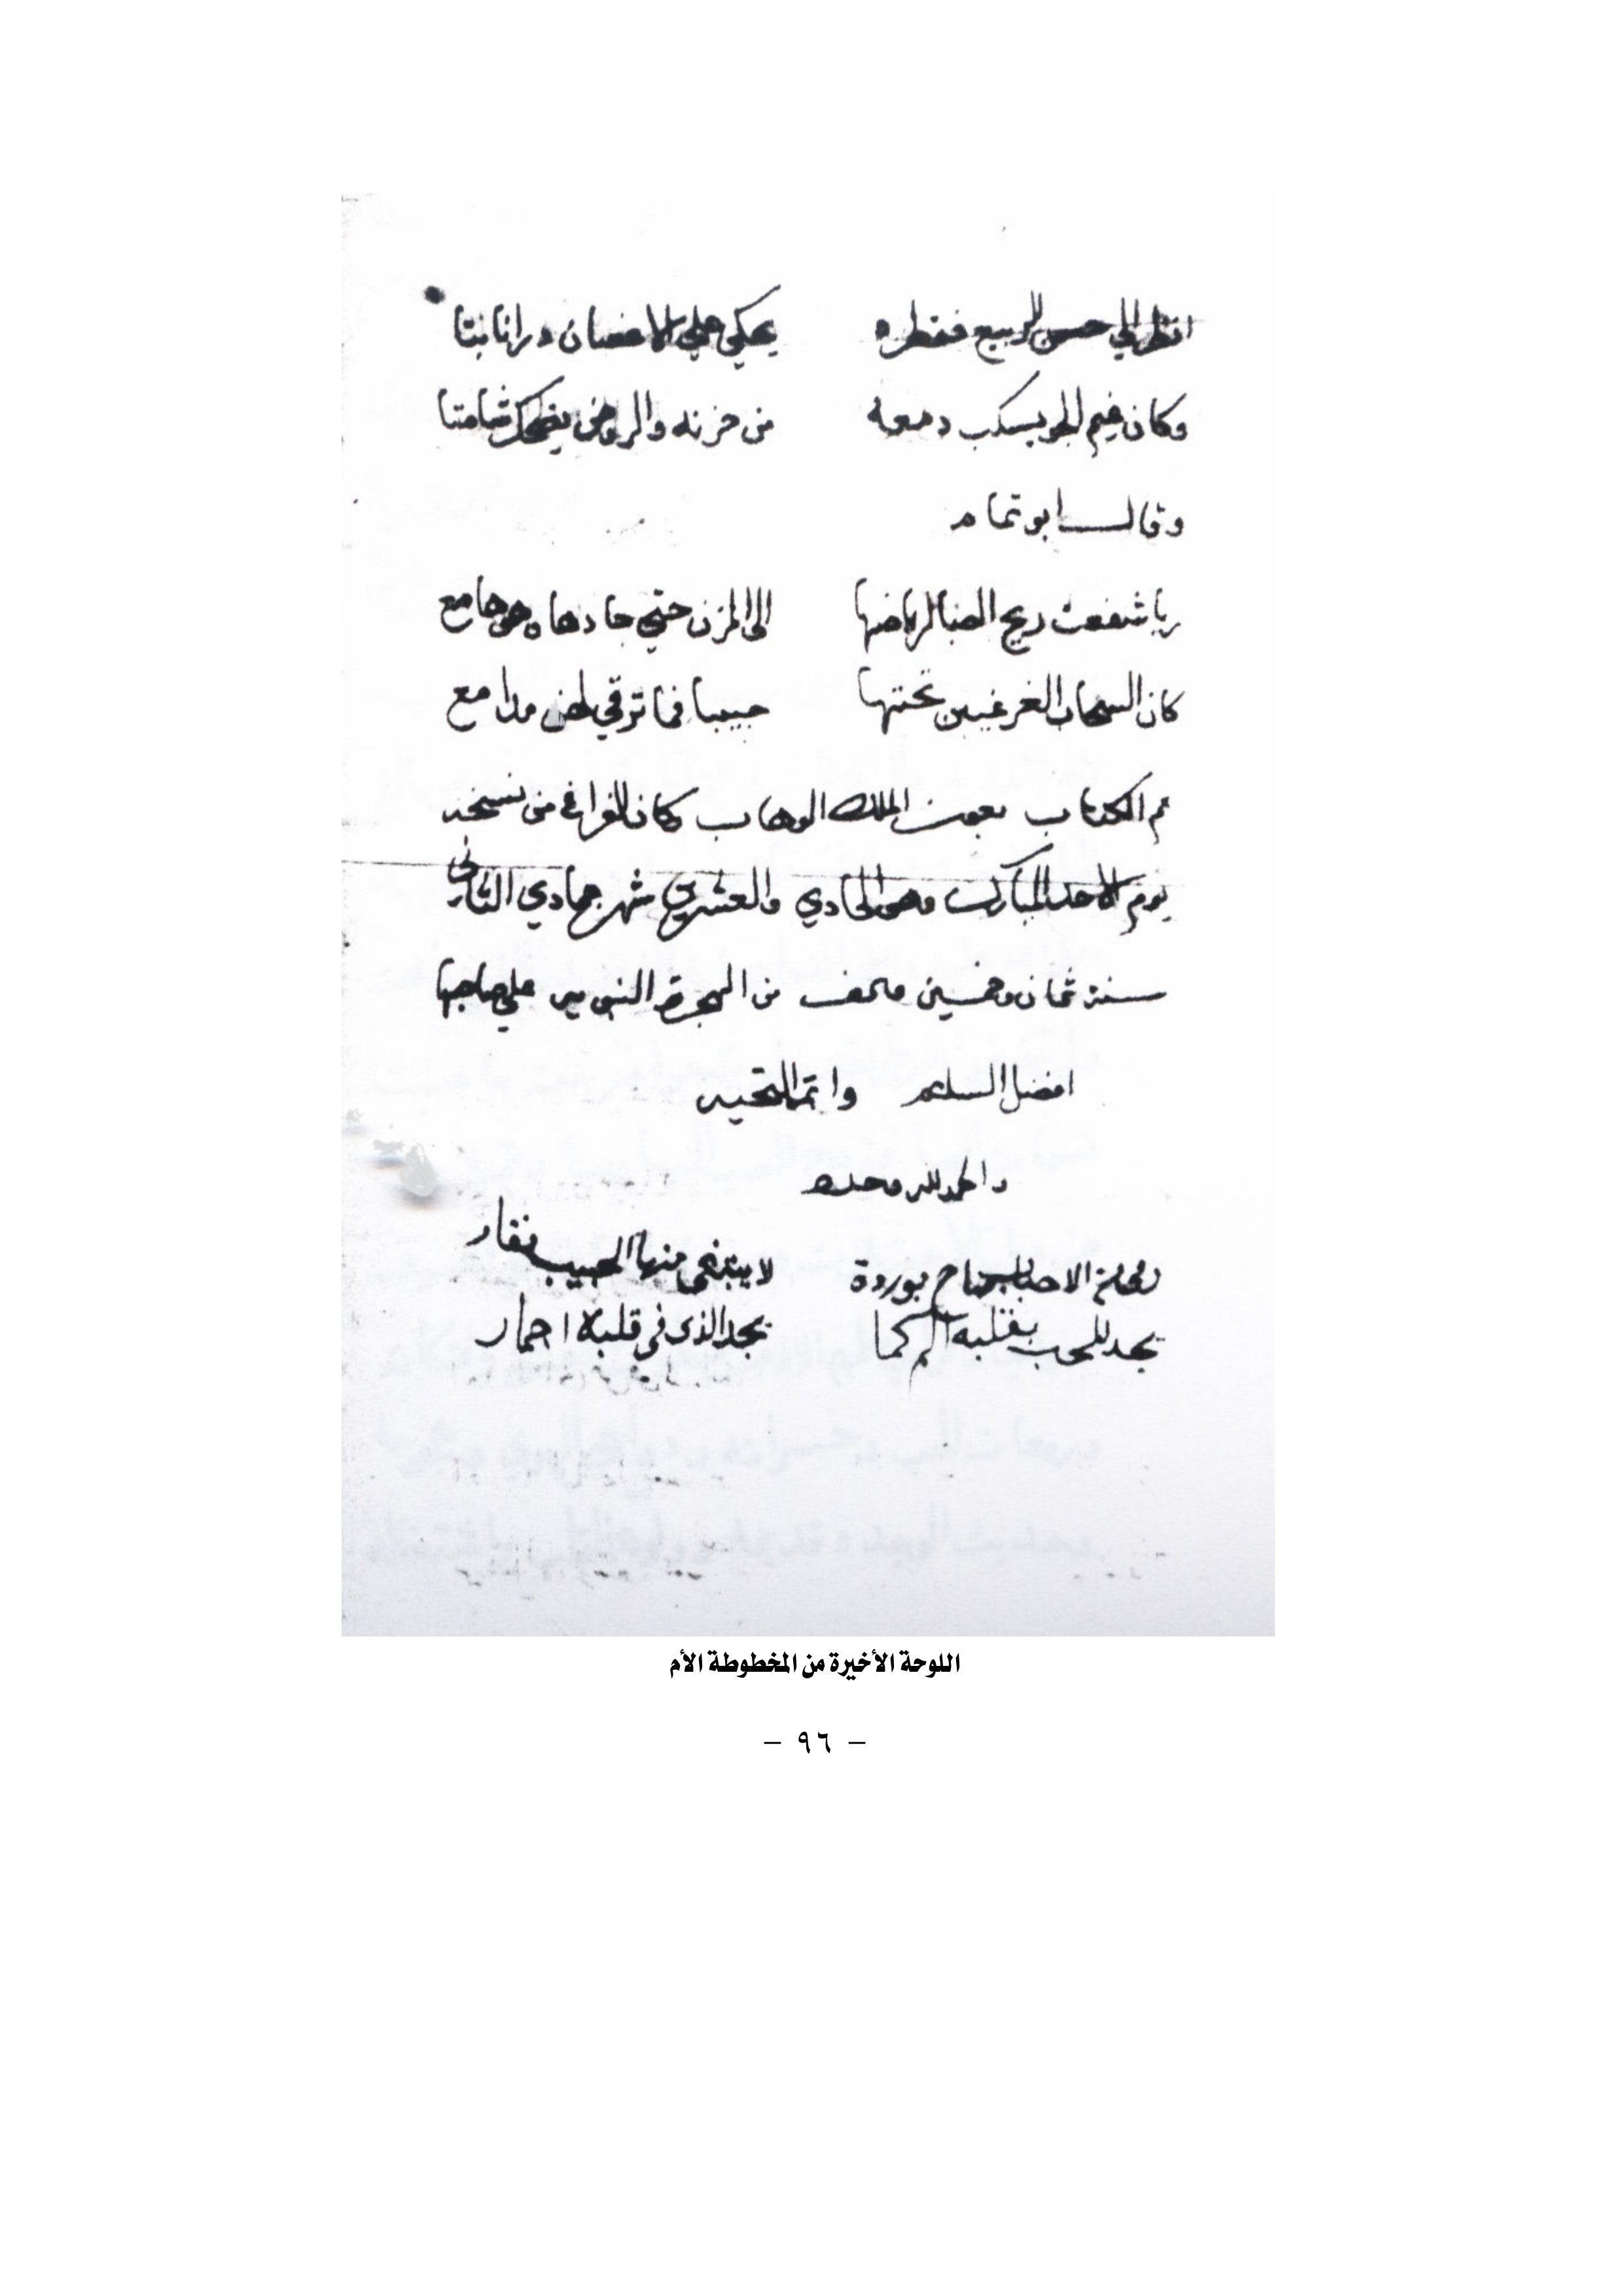 انظر الي حسن الربيع فقطره يحكي علي الاغصان درا نابتا
وكان غيم الجو يسكب دمعه من حزنه والروض يضحك شامتا
وقال ابو تمام
ربا شفعت ريح الصبا لرياضها الى المزن حتي جادها وهو هامع
كان السحاب الغر غيبن تحتها حبيبا فما ترقي لهن مدامع
تم الكتاب بعون الملك الوهاب وكان الفراغ من نسخه
يوم الاحد المبارك وهو الحادي والعشرين شهر جمادي الثاني
سنة ثمان وخمسين من الهجرة النبويه علي صاحبها
افضل السلام واتم التحيه
والحمد لله وحده
الاحباب بوردة لا يبتغي منها الحبيب نفار
يجد المحب بقلبه الم كما يجد الذى فى قلبه احمار
اللوحة الأخيرة من المخطوطة الأم
– ٩٦ –